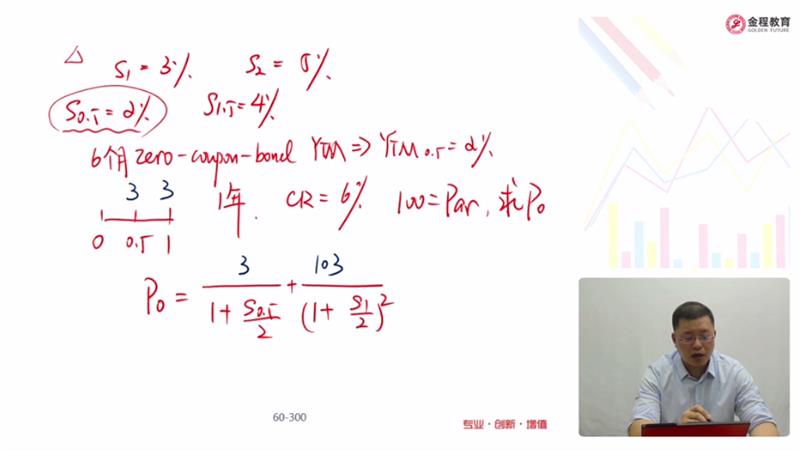 金程教育
GOLDEN FUTURE
△ S₁ = 3% S₂ = 5%
S₀.₅ = 2% S₁.₅ = 4%
6个月 zero-coupon-bond YTM => YTM₀.₅ = 2%
3 3 1年. CR = 6% 100 = Par, 求 P₀
0 0.5 1
P₀ = 3/(1 + S₀.₅/2) + 103/(1 + S₁/2)²
60-300
专业·创新·增值